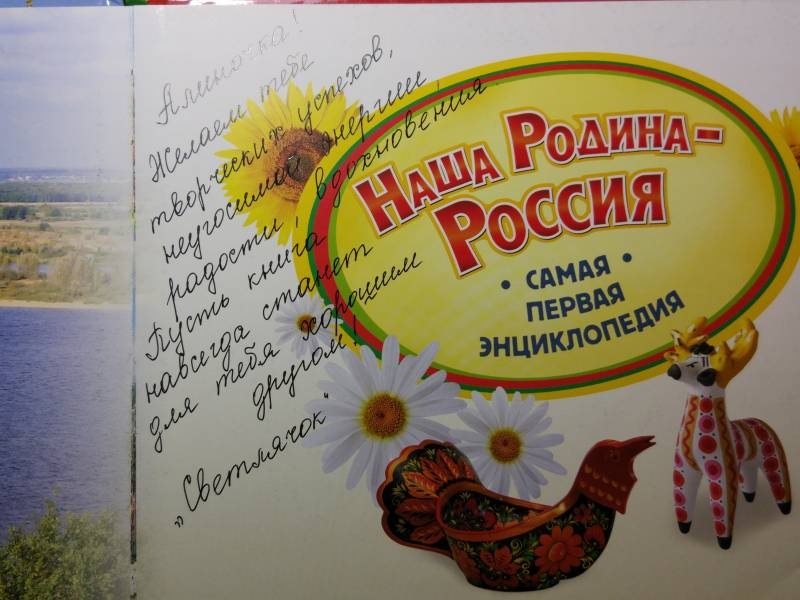 Алиночка!
Желаем тебе
творческих успехов,
неугосимой энергии,
радости, вдохновения
Пусть книга
навсегда станет
для тебя хорошим
другом!
„Светлячок"
НАША РОДИНА–
РОССИЯ
• САМАЯ •
ПЕРВАЯ
ЭНЦИКЛОПЕДИЯ